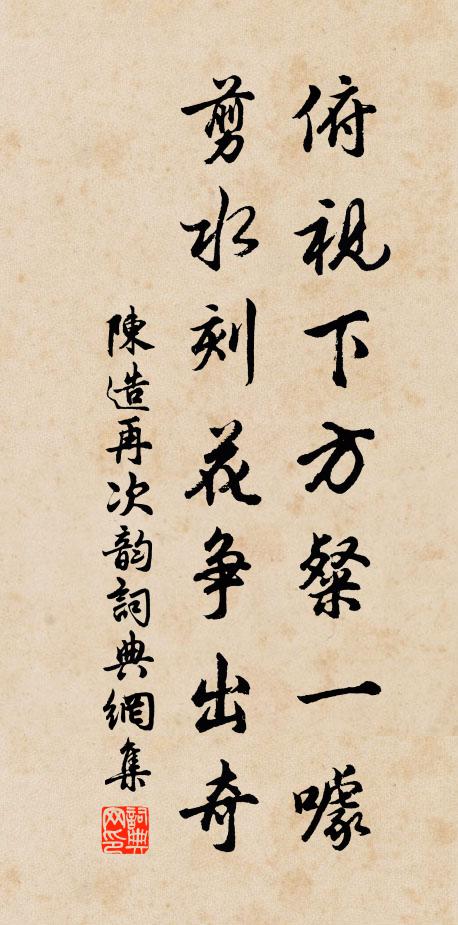 俯視下方粲一噱
剪水刻花争出奇
陳造再次韵詞典網集
詞典网印